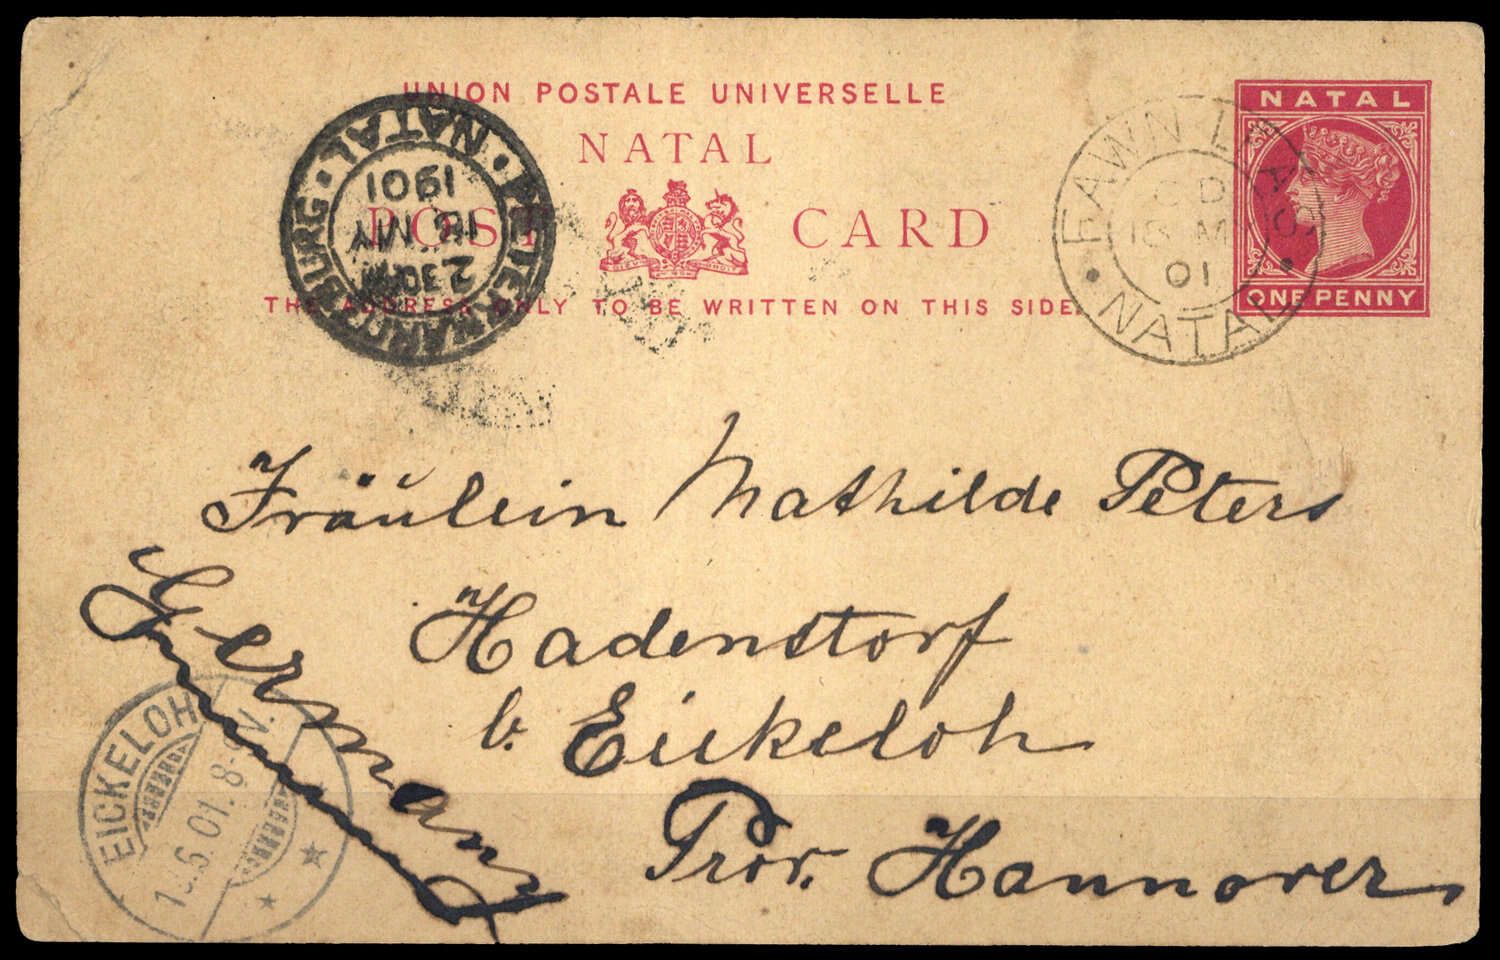 UNION POSTALE UNIVERSELLE
NATAL
POST CARD
THE ADDRESS ONLY TO BE WRITTEN ON THIS SIDE.
NATAL
ONE PENNY
FAWN LEAS
18 M
01
NATAL
PIETERMARITZBURG · NATAL
2 30 PM
18 MY
1901
Fräulein Mathilde Peters
Hadenstorf
b. Eickeloh
Prov. Hannover
Germany
EICKELOH
.6.01. 8-9V.